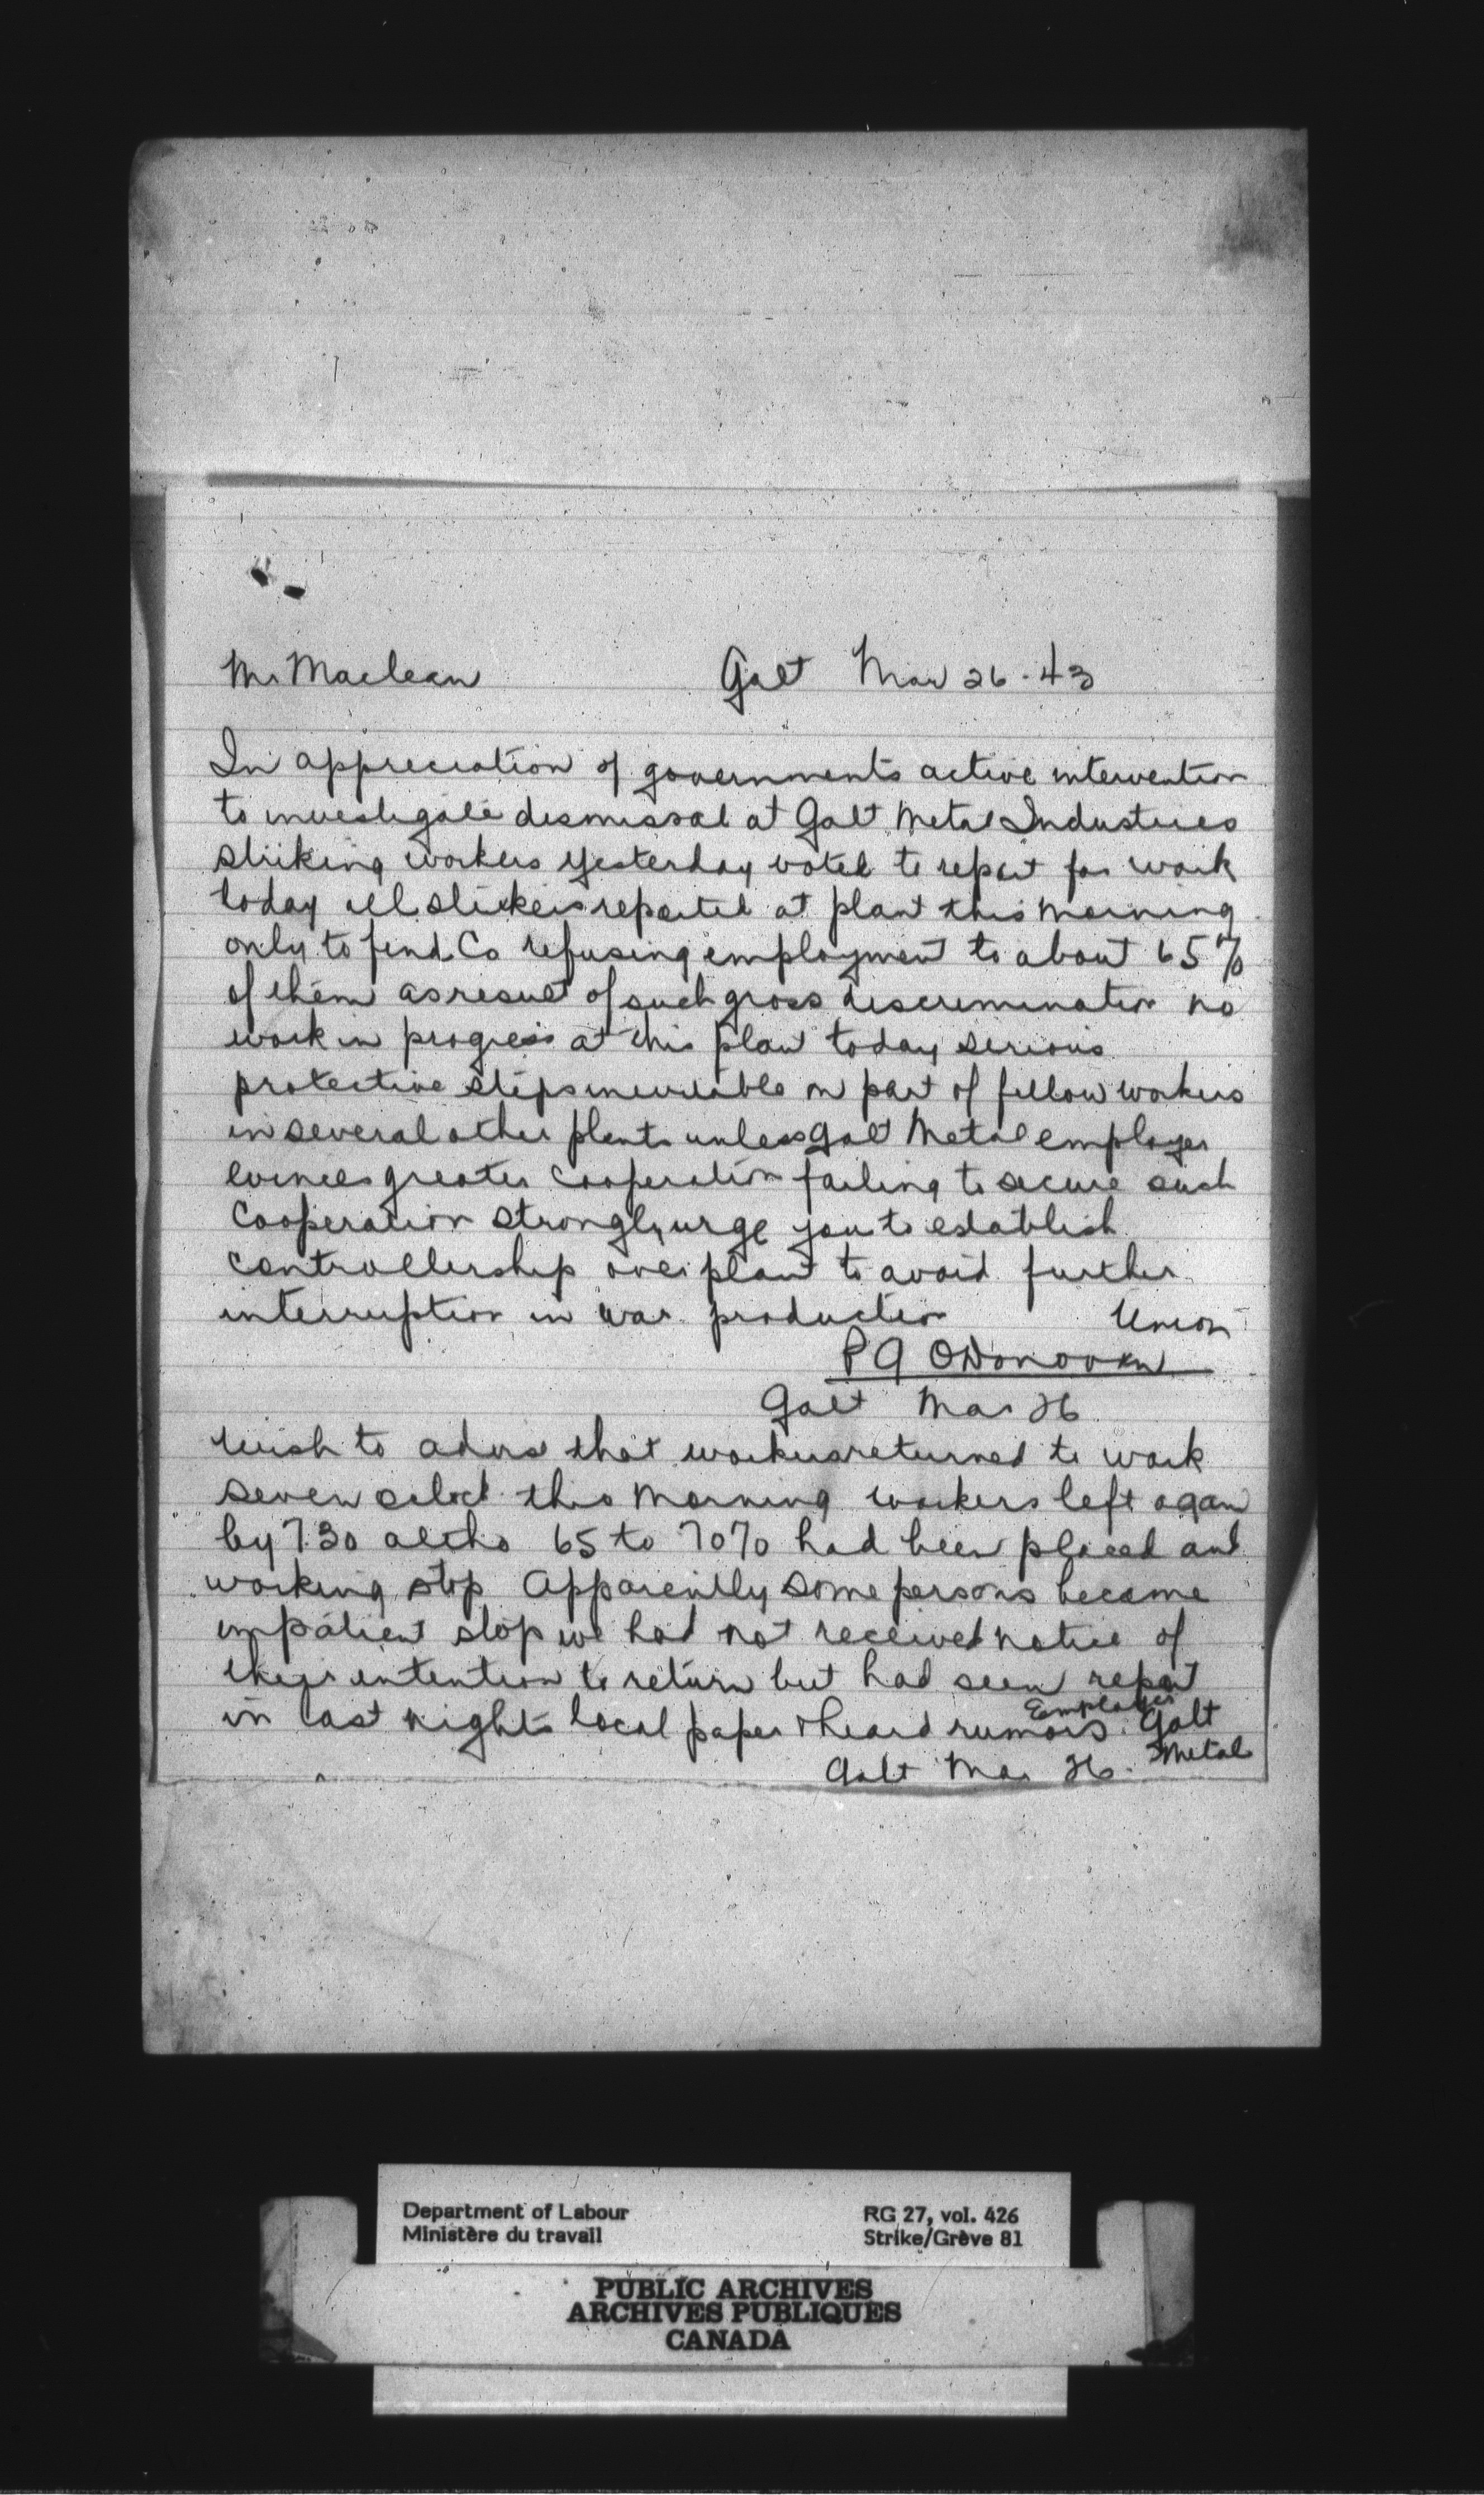 Mr Maclean Galt Mar 26 - 43
In appreciation of governments active intervention
to investigate dismissal at Galt Metal Industries
striking workers yesterday voted to report for work
today all strikers reported at plant this morning
only to find Co refusing employment to about 65%
of them as result of such gross discrimination no
work in progress at this plant today serious
protective steps inevitable on part of fellow workers
in several other plants unless Galt Metal employer
evinces greater cooperation failing to secure such
cooperation strongly urge you to establish
controllership over plant to avoid further
interruption in war production Union
P G ODonovan
Galt Mar 26
Wish to advise that workers returned to work
seven oclock this morning workers left again
by 7.30 altho 65 to 70% had been placed and
working stop Apparently some persons became
impatient stop we had not received notice of
their intention to return but had seen report
in last nights local paper & heard rumors. Employer Galt
Metal
Galt Mar 26.
Department of Labour RG 27, vol. 426
Ministère du travail Strike/Grève 81
PUBLIC ARCHIVES
ARCHIVES PUBLIQUES
CANADA